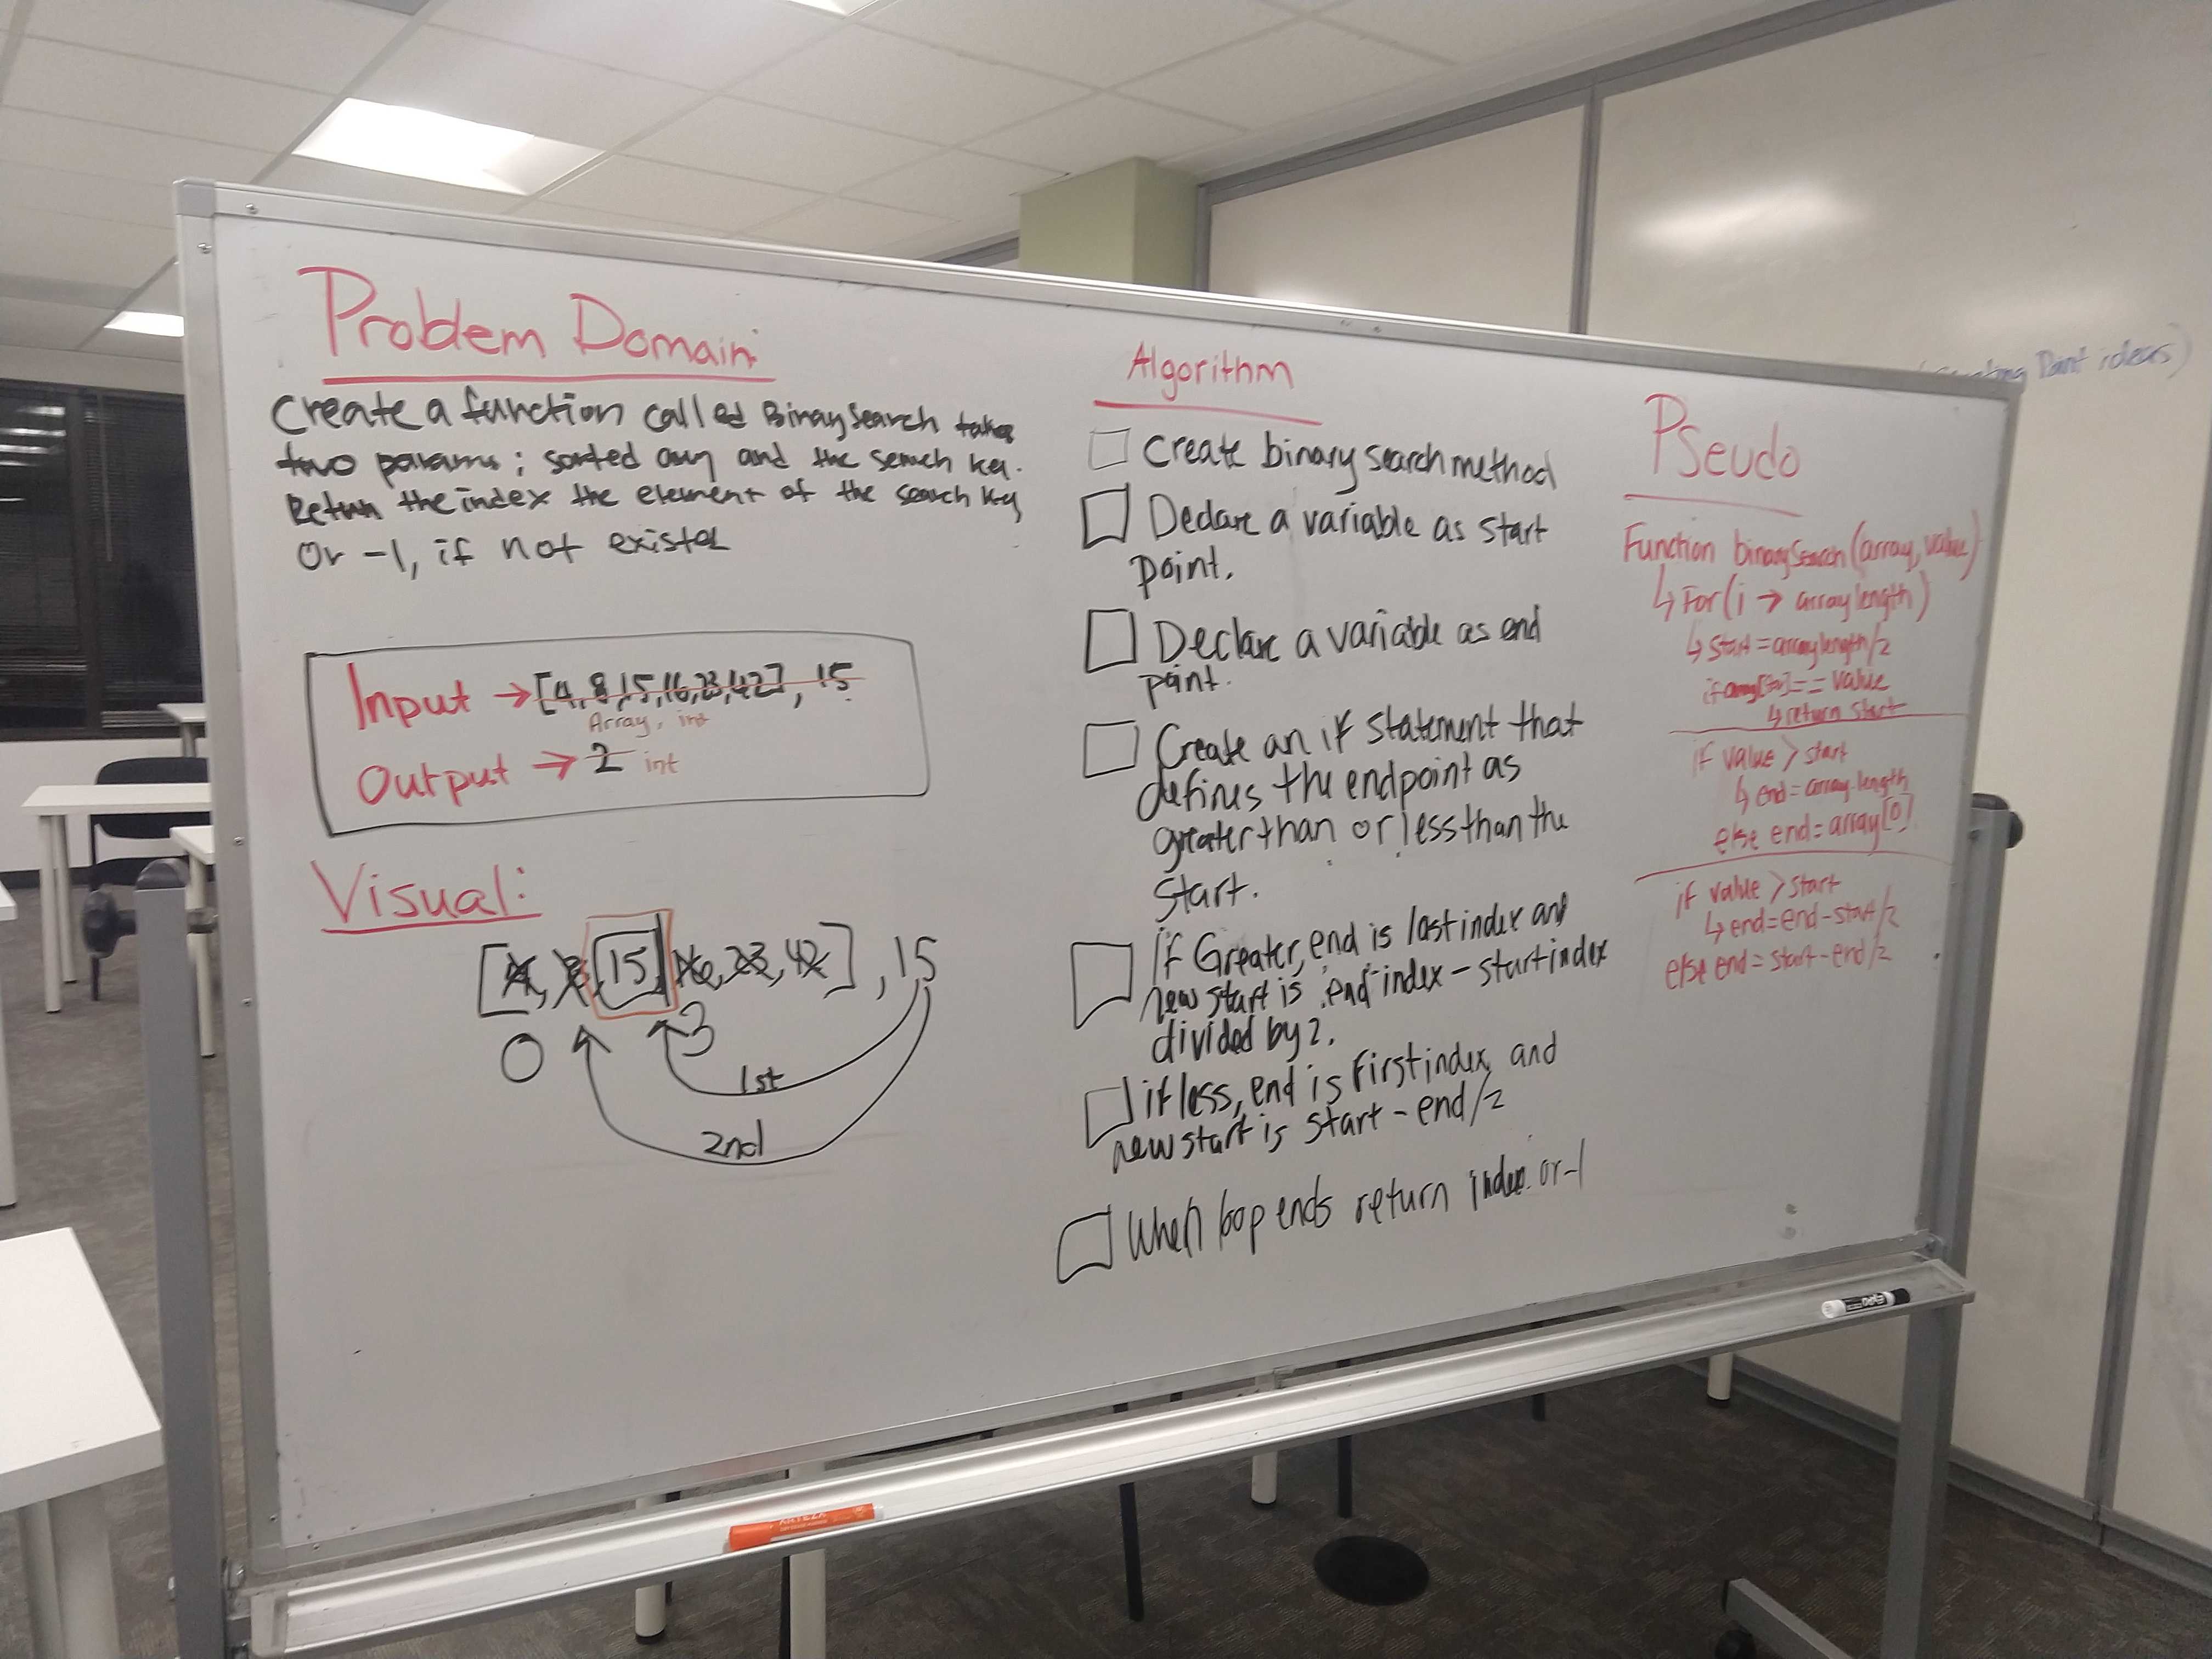 Problem Domain:
Create a function called BinarySearch takes
two params; sorted array and the search key.
Return the index the element of the search key
Or -1, if not existed
Input → [4,8,15,16,23,42], 15
Array, int
Output → 2 int
Visual:
[4, 8, 15, 16, 23, 42], 15
0 3
1st
2nd
Algorithm
Create binary search method
Declare a variable as start
point.
Declare a variable as end
point.
Create an if statement that
defines the endpoint as
greater than or less than the
start.
If Greater, end is last index and
new start is end index - start index
divided by 2.
if less, end is First index and
new start is start - end/2
When loop ends return index or -1
Pseudo
Function binarySearch(array, value)
↳ For(i → array length)
↳ start = array length/2
if array[ ] == value
↳ return start
if value > start
↳ end = array.length
else end = array[0]
if value > start
↳ end = end - start/2
else end = start - end/2
Point ideas)
EXPO